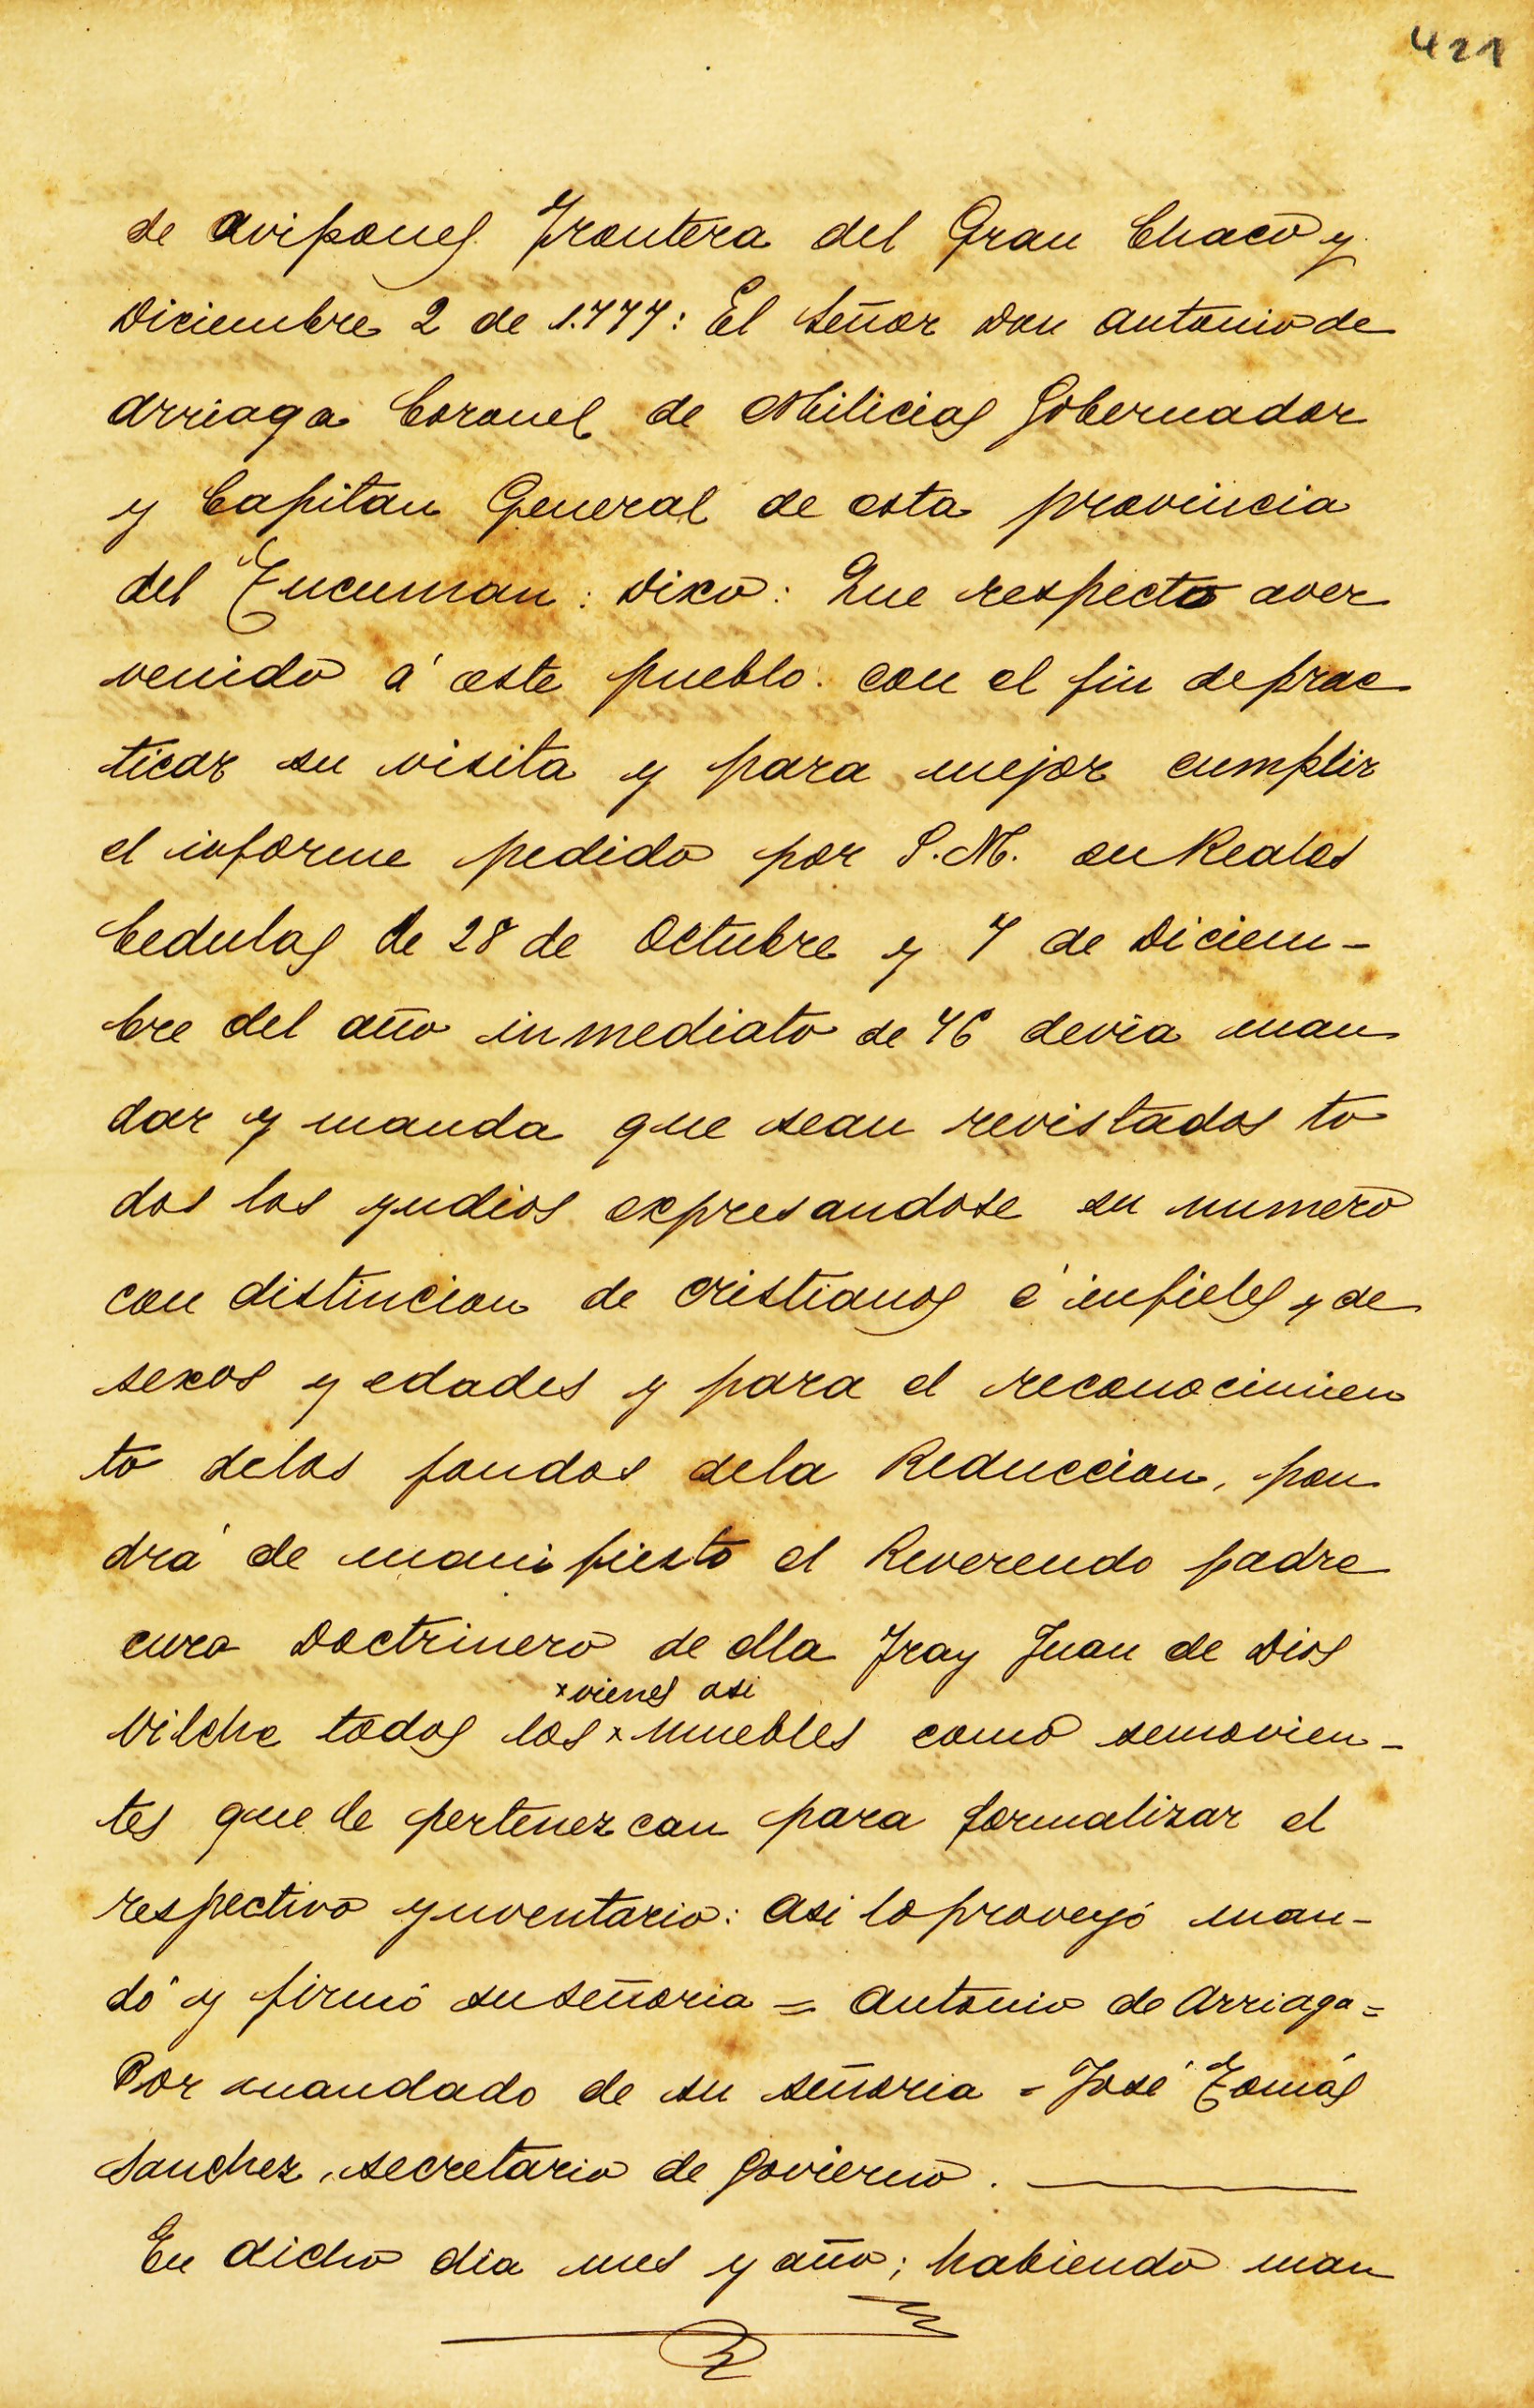 421
de avipones Frontera del Gran Chaco y
Diciembre 2 de 1.777: El Señor Don Antonio de
Arriaga Coronel de Milicias Gobernador
y Capitan General de esta provincia
del Tucuman: Dixo: Que respecto aver
venido á este pueblo con el fin de prac
ticar su visita y para mejor cumplir
el informe pedido por S.M. en Reales
Cedulas de 28 de Octubre y 7 de Diciem-
bre del año inmediato de 76 devia man
dar y manda que sean revistados to
dos los yndios expresandose su numero
con distincion de cristianos é infieles y de
sexos y edades y para el reconocimien
to delos fondos dela Reduccion, pon
drá de manifiesto el Reverendo padre
cura Doctrinero de ella Fray Juan de Dios
×vienes asi
Vilche todos los × muebles como semovien-
tes que le pertenezcan para formalizar el
respectivo ynventario: asi lo proveyó man-
dó y firmó su señoria = Antonio de Arriaga =
Por mandado de su señoria = José Tomás
Sanchez, secretario de Govierno.
En dicho dia mes y año; habiendo man